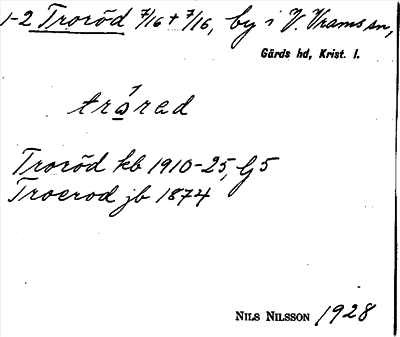 1-2 Troröd 7/16 + 7/16, by i V. Vrams sn,
Gärds hd, Krist. l.
trårad
Troröd kb 1910-25, G5
Troerod jb 1874
NILS NILSSON 1928